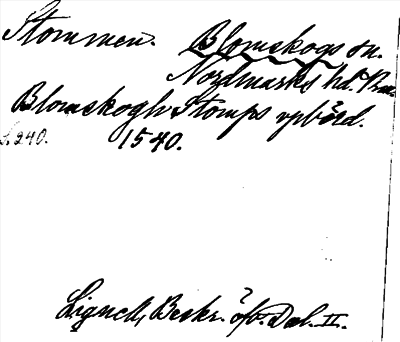 Stommen. Blomskogs sn.
Nordmarks hd. Vrml.
Blomskogh Stomps upbörd.
S. 240. 1540.
Lignell, Beskr. öfv. Dal. II.